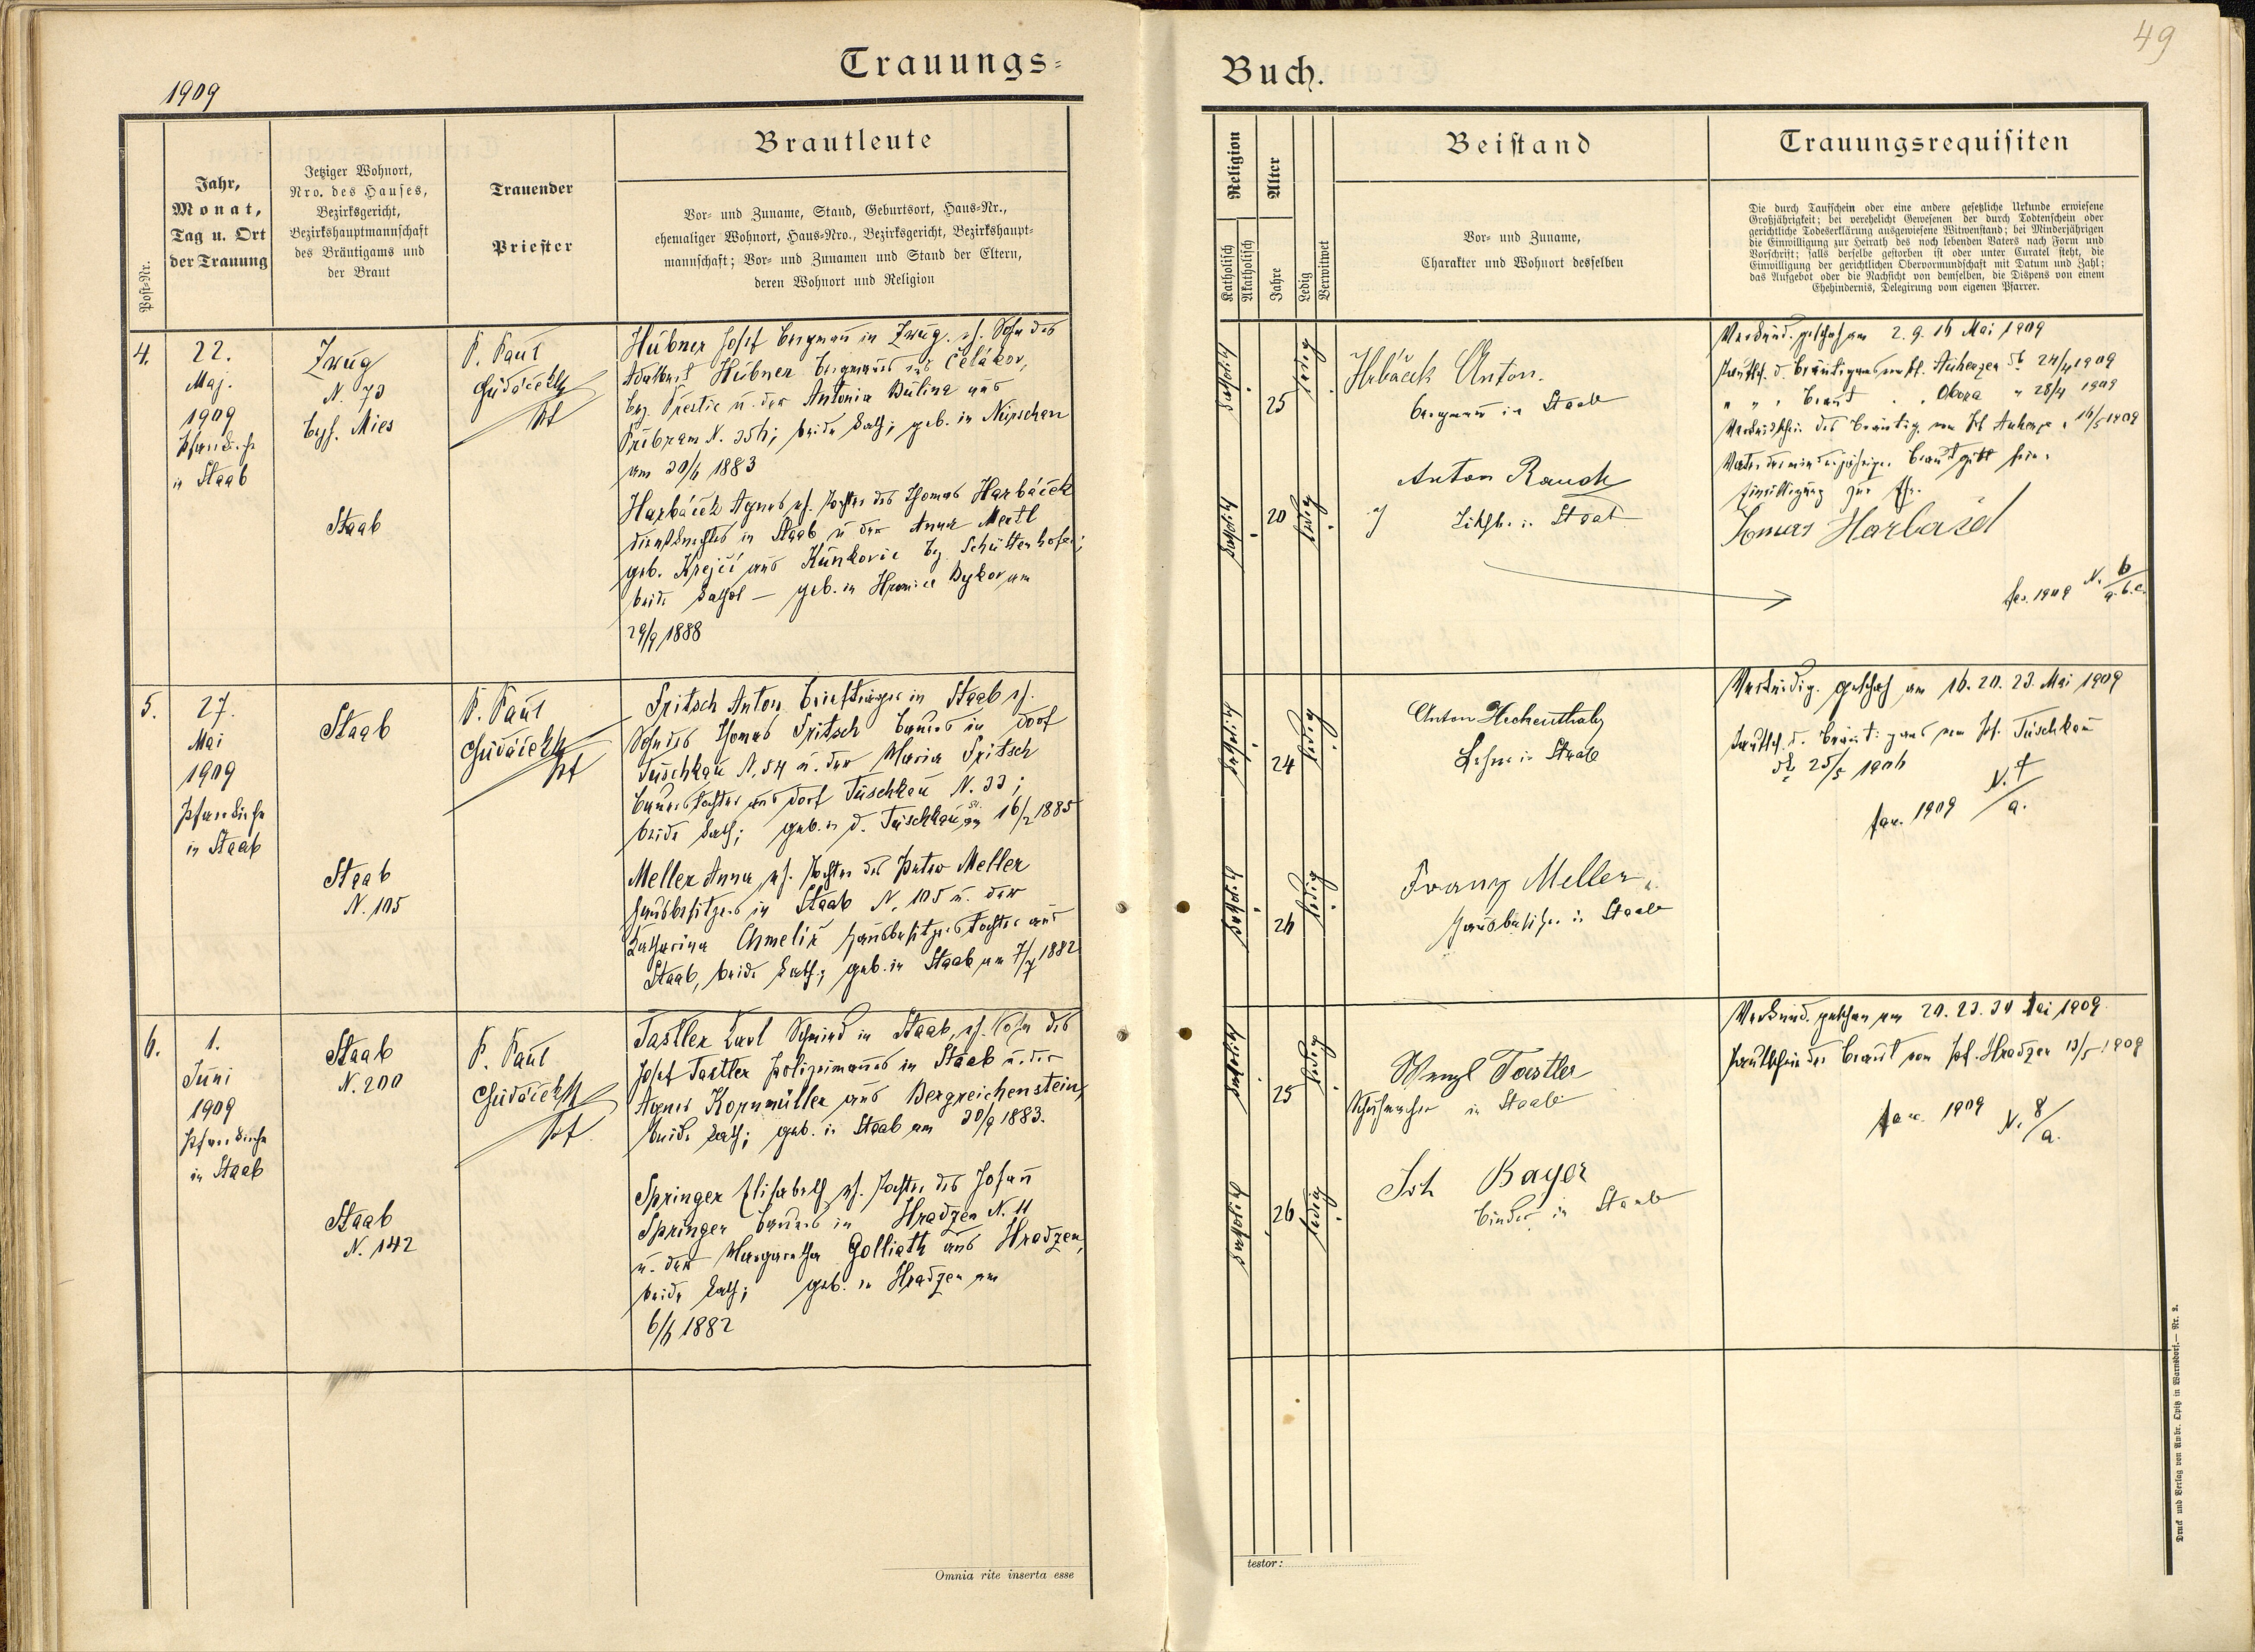 49
Trauungs=
Buch.
1909
Post=Nr.
Jahr,
Monat,
Tag u. Ort
der Trauung
Jetziger Wohnort,
Nro. des Hauses,
Bezirksgericht,
Bezirkshauptmannschaft
des Bräutigams und
der Braut
Trauender
Priester
Brautleute
Vor= und Zuname, Stand, Geburtsort, Haus=Nr.,
ehemaliger Wohnort, Haus=Nro., Bezirksgericht, Bezirkshaupt=
mannschaft; Vor= und Zunamen und Stand der Eltern,
deren Wohnort und Religion
Religion
Katholisch
Akatholisch
Alter
Jahre
Ledig
Verwitwet
Beistand
Vor= und Zuname,
Charakter und Wohnort desselben
Trauungsrequisiten
Die durch Taufschein oder eine andere gesetzliche Urkunde erwiesene
Großjährigkeit; bei verehelicht Gewesenen der durch Todtenschein oder
gerichtliche Todeserklärung ausgewiesene Witwenstand; bei Minderjährigen
die Einwilligung zur Heirath des noch lebenden Vaters nach Form und
Vorschrift; falls derselbe gestorben ist oder unter Curatel steht, die
Einwilligung der gerichtlichen Obervormundschaft mit Datum und Zahl;
das Aufgebot oder die Nachsicht von demselben, die Dispens von einem
Ehehindernis, Delegirung vom eigenen Pfarrer.
4.
22.
Maj.
1909
Pfarrkirche
in Staab
Zwug
N. 73
Bzh. Mies
Staab
P. Paul
Hübner Josef Bergmann in Zwug, eh. Sohn des
Adalbert Hübner Bergmanns aus Čelákov,
Bez. Přestic u. der Antonia Bulina aus
Přibram N. 256; beide kath; geb. in Nürschan
am 30/6 1883
Harbáček Agnes eh. Tochter des Thomas Harbáček
Dienstknechtes in Staab u der Anna Mertl
geb. Krejčí aus Kunkovic Bz. Schüttenhofen;
beide kathol — geb. in am
29/9 1888
katholisch
25
ledig
katholisch
20
ledig
Hrbáček Anton.
Bergmann in Staab
Anton Rauch
in Staab
Verkünd. geschah am 2. 9. 16 Mai 1909
Taufsch. d. Bräutigams vom Pf. Auherzen dto 24/4 1909
" " " Braut " " Obora " 28/4 1909
Verkündschein des Bräutig. vom Pf Auherzen " 16/5 1909
Vater der minderjährigen Braut gibt seine
Einwilligung zur Ehe.
fas. 1909 N. 6/a.b.c.
5.
27.
Mai
1909
Pfarrkirche
in Staab
Staab
Staab
N. 105
P. Paul
Fritsch Anton Briefträger in Staab eh.
Sohn des Thomas Fritsch Bauers in Dorf
Tuschkau N. 54 u. der Maria Fritsch
Bauerstochter aus Dorf Tuschkau N. 33;
beide kath; geb. in D. Tuschkau am 16/2 1885
Meller Anna eh. Tochter des Peter Meller
Hausbesitzers in Staab N. 105 u. der
Katharina Chmeliř Hausbesitzerstochter aus
Staab, beide kath; geb. in Staab am 7/7 1882
katholisch
24
ledig
katholisch
26
ledig
Anton Hechenthaly
Lehrer in Staab
Franz Meller
Hausbesitzer in Staab
Verkündig. geschah am 16. 20. 23. Mai 1909
Taufsch. d. Bräutigams vom Pf. Tuschkau
dto 25/5 1906
fas. 1909 N. 7/a.
6.
1.
Juni
1909
Pfarrkirche
in Staab
Staab
N. 200
Staab
N. 142
P. Paul
Tastler Karl Schmied in Staab, eh. Sohn des
Josef Tastler Polizeimannes in Staab u. der
Agnes Kornmüller aus Bergreichenstein,
beide kath; geb. in Staab am 30/9 1883.
Springer Elisabeth eh. Tochter des Johann
Springer Bauers in Hradzen N. 11
u. der Margaretha Golliath aus Hradzen,
beide kath; geb. in Hradzen am
6/6 1882
katholisch
25
ledig
katholisch
26
ledig
Wenzl Tastler
Schuhmacher in Staab
Joh Bayer
Binder in Staab
Verkünd. geschah am 20. 23. 30 Mai 1909.
Taufschein der Braut vom Pf. Hradzen 13/5 1909
fasc. 1909 N. 8/a.
Omnia rite inserta esse
testor:
Druck und Verlag von Ambr. Opitz in Warnsdorf.— Nr. 2.